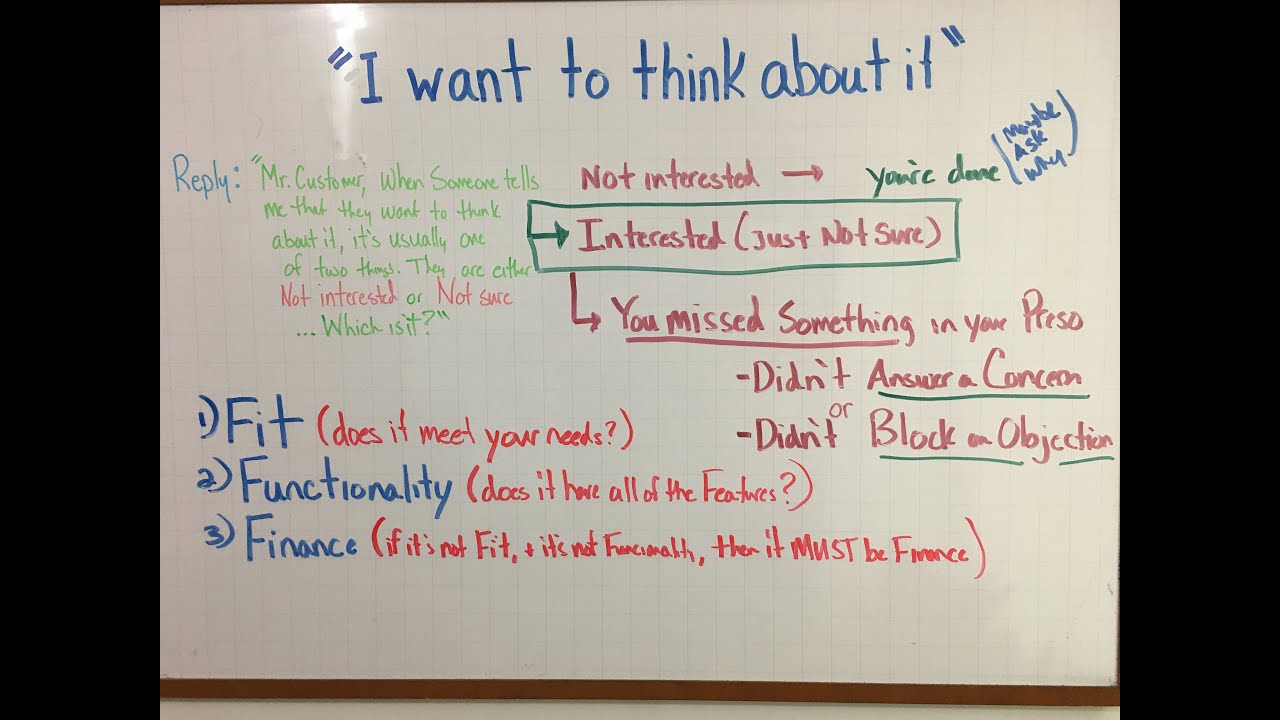 "I want to think about it"
Reply: "Mr. Customer, When Someone tells
me that they want to think
about it, it's usually one
of two things. They are either
Not interested or Not sure
... Which is it?"
Not interested → you're done (Maybe
Ask
Why)
→ Interested (Just Not Sure)
↳ You missed Something in your Preso
- Didn't Answer a Concern
or
- Didn't Block an Objection
1) Fit (does it meet your needs?)
2) Functionality (does it have all of the Features?)
3) Finance (if it's not Fit, + it's not Funcionality, then it MUST be Finance)